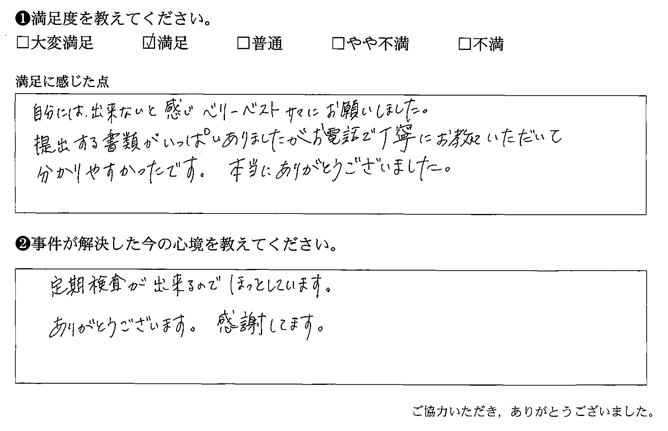 ❶満足度を教えてください。
□大変満足 ☑満足 □普通 □やや不満 □不満
満足に感じた点
自分には出来ないと感じベリーベストサマにお願いしました。
提出する書類がいっぱいありましたがお電話で丁寧にお教えいただいて
分かりやすかったです。 本当にありがとうございました。
❷事件が解決した今の心境を教えてください。
定期検査が出来るのでほっとしています。
ありがとうございます。 感謝してます。
ご協力いただき，ありがとうございました。